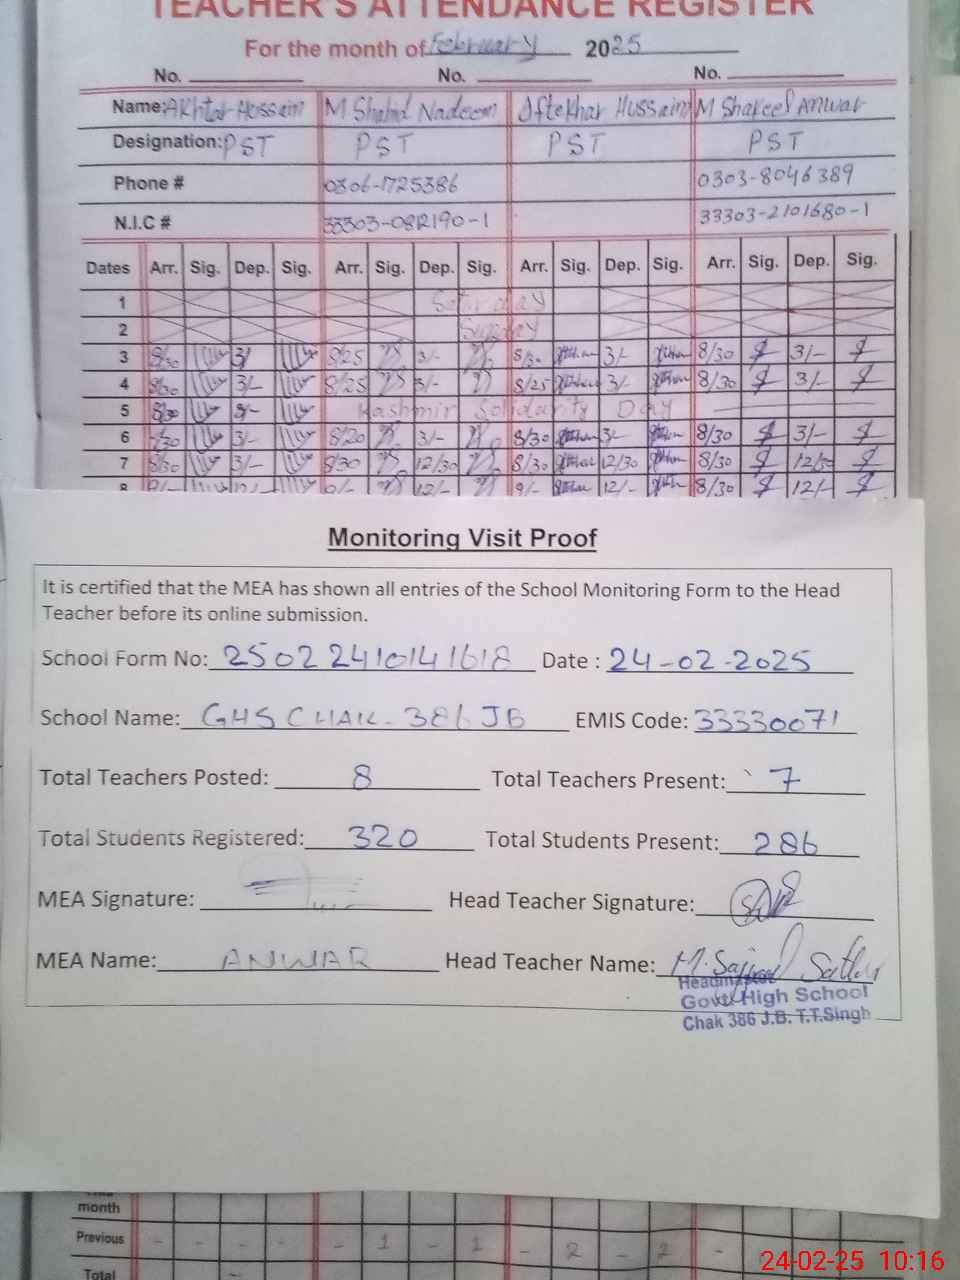 TEACHER'S ATTENDANCE REGISTER
For the month of February 2025
No. No. No.
Name: Akhtar Hussain M Shahid Nadeem Iftekhar Hussain M Shakeel Anwar
Designation: PST PST PST PST
Phone # 0306-1725386 0303-8046389
N.I.C # 33303-0812190-1 33303-2101680-1
Dates Arr. Sig. Dep. Sig. Arr. Sig. Dep. Sig. Arr. Sig. Dep. Sig. Arr. Sig. Dep. Sig.
1 Saturday
2 Sunday
3 8/30 3/ 8/25 3/- 8/30 3/- 8/30 3/-
4 8/30 3/- 8/25 3/- 8/25 3/- 8/30 3/-
5 8/30 3/- Kashmir Solidarity Day
6 7/30 3/- 8/20 3/- 8/30 3/- 8/30 3/-
7 8/30 3/- 8/30 12/30 8/30 12/30 8/30 12/30
8 12/- 9/- 12/- 8/30 12/-
Monitoring Visit Proof
It is certified that the MEA has shown all entries of the School Monitoring Form to the Head
Teacher before its online submission.
School Form No: 25022410141618 Date : 24-02-2025
School Name: GHS CHAK-386 JB EMIS Code: 33330071
Total Teachers Posted: 8 Total Teachers Present: 7
Total Students Registered: 320 Total Students Present: 286
MEA Signature: Head Teacher Signature:
MEA Name: ANWAR Head Teacher Name: M. Sajjad Sattar
Headmaster
Govt. High School
Chak 386 J.B. T.T.Singh
month
Previous - - - - - 1 - 1 - 2 - 2 -
Total -
24-02-25 10:16